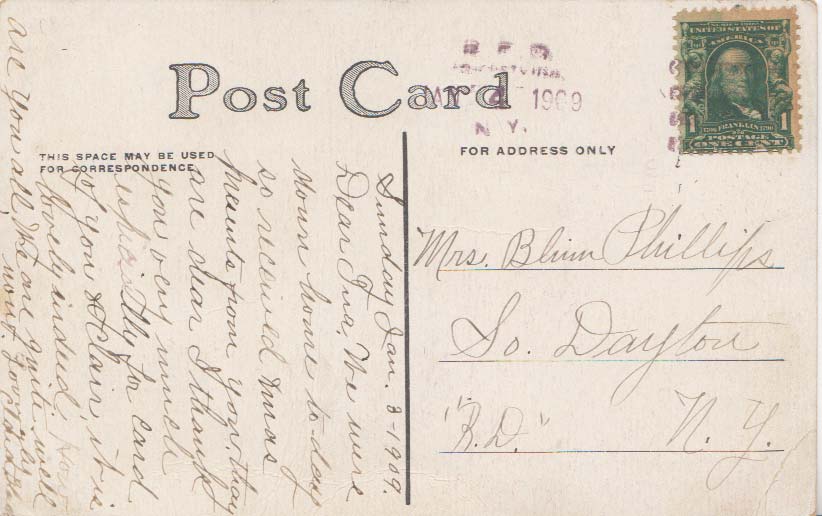 Post Card
THIS SPACE MAY BE USED
FOR CORRESPONDENCE
FOR ADDRESS ONLY
R.F.D.
1909
N.Y.
SERIES 1902
UNITED STATES OF
AMERICA
1706 FRANKLIN 1790
1 1
POSTAGE
ONE CENT
Mrs. Blinn Phillips
So. Dayton
"R.D." N.Y.
Sunday Jan. 3-1909.
Dear Ina. We were
down home to-day
so received Xmas
presents from you, they
are dear I thank
you very much
especially for card
of you & Clair it is
lovely indeed. How
are you all. We are quite well